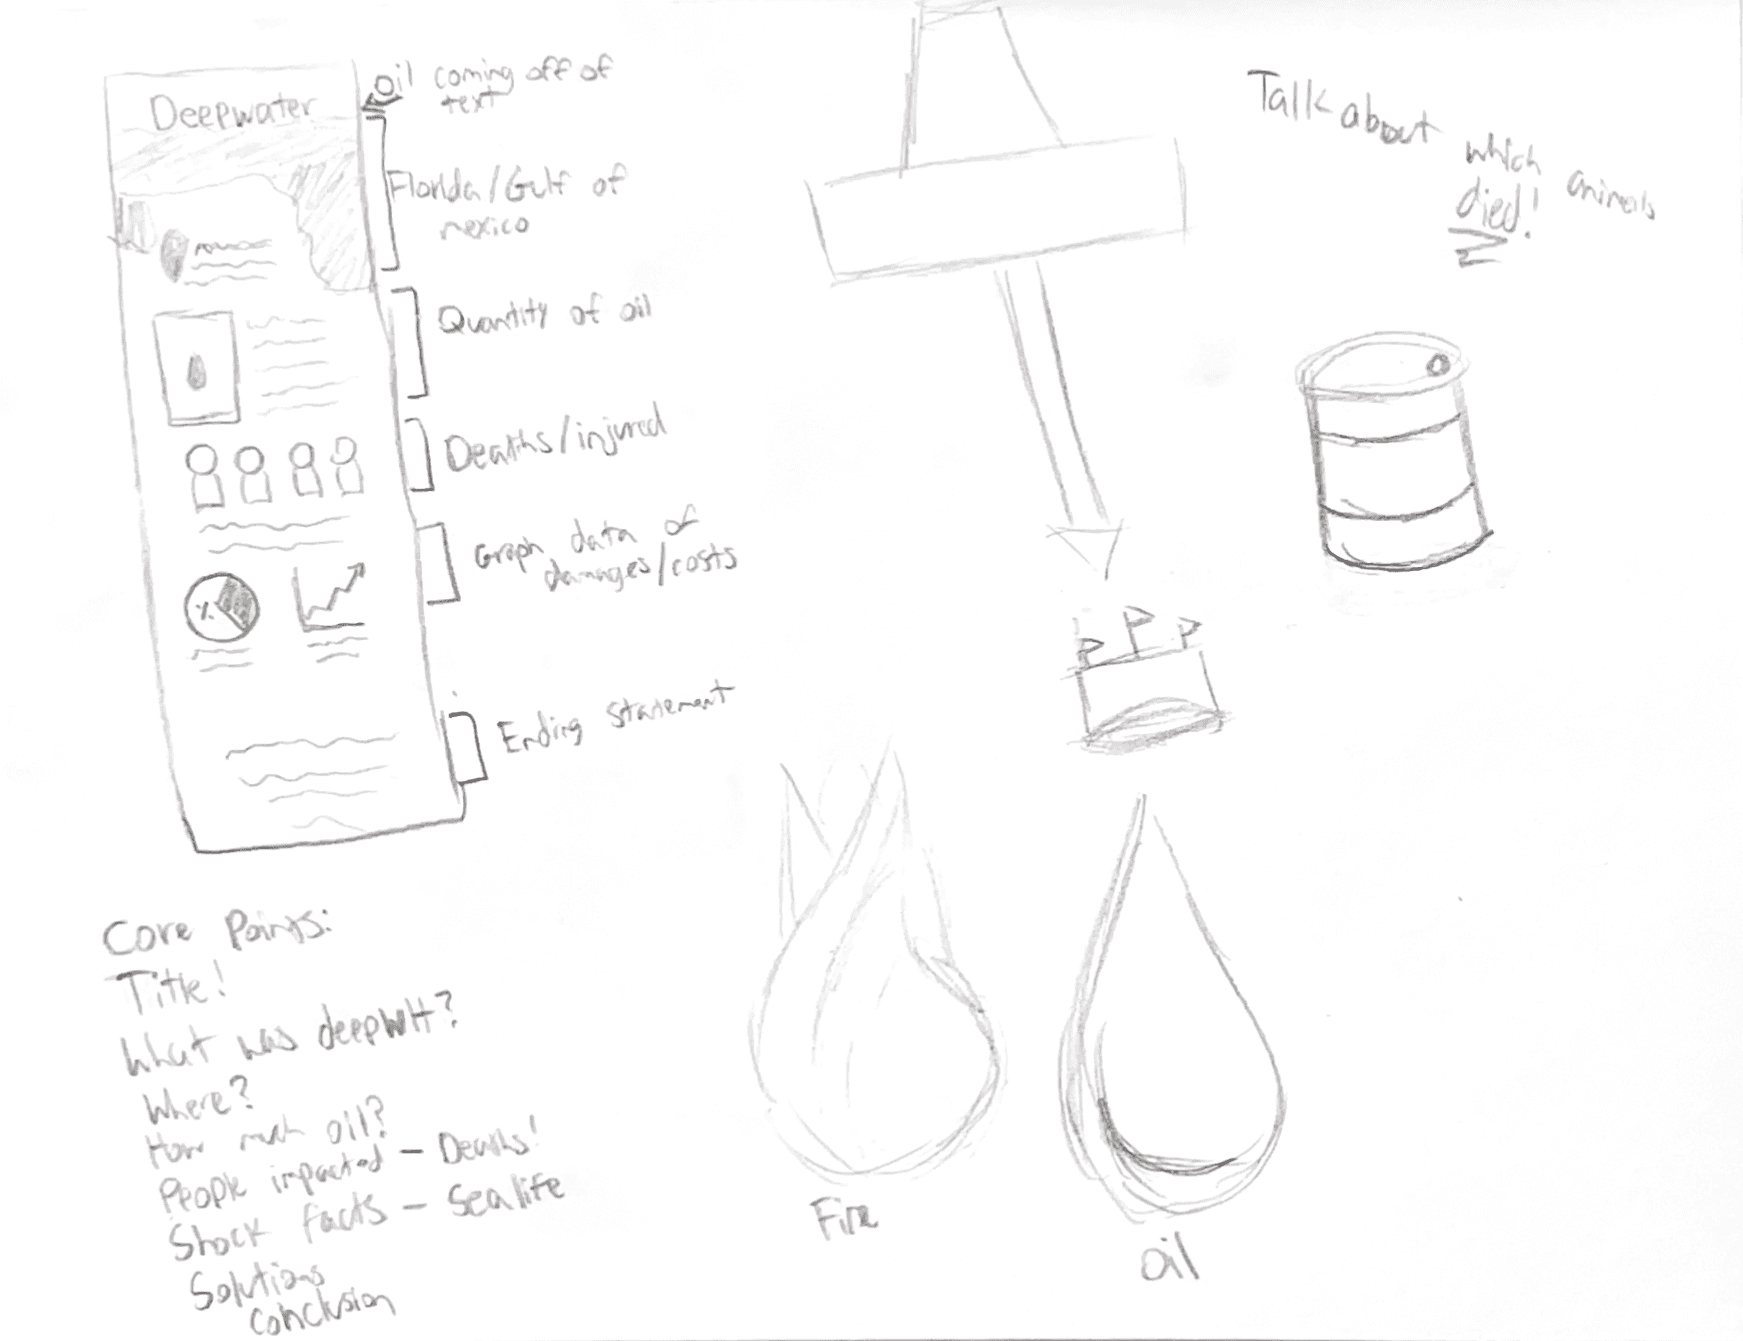 Deepwater
oil coming off of
text
Florida/Gulf of
mexico
Quantity of oil
Deaths/injured
Graph data of
damages/costs
%
Ending statement
Talk about which animals
died!
Core Points:
Title!
What was deepwH?
Where?
How much oil?
People impacted - Deaths!
Shock facts - Sealife
Solutions
Conclusion
Fire
oil